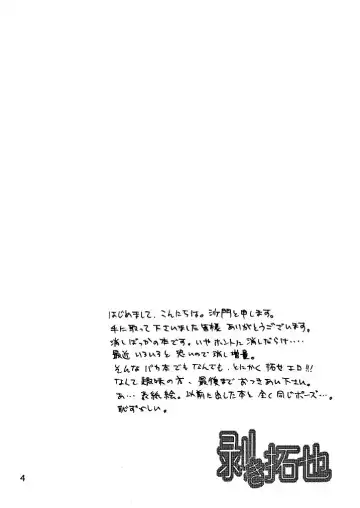 はじめまして、こんにちは。沙門と申します。
手に取って下さいました皆様 ありがとうございます。
消しばっかの本です。いやホントに消しだらけ‥‥
最近 いろいろと 恐いので 消し増量。
そんな バカ本でもなんでも、とにかく 拓也 エロ!!!
なんて 趣味の方、最後まで おつきあい下さい。
あ… お紙絵。以前に出した本と 全く同じポーズ…。
恥ずかしい。
剥き拓也
4